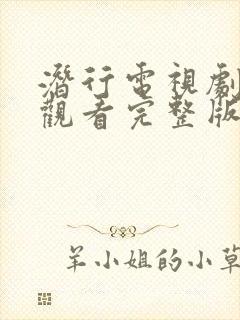 潛行電視劇
觀看完整版
羊小姐的小草